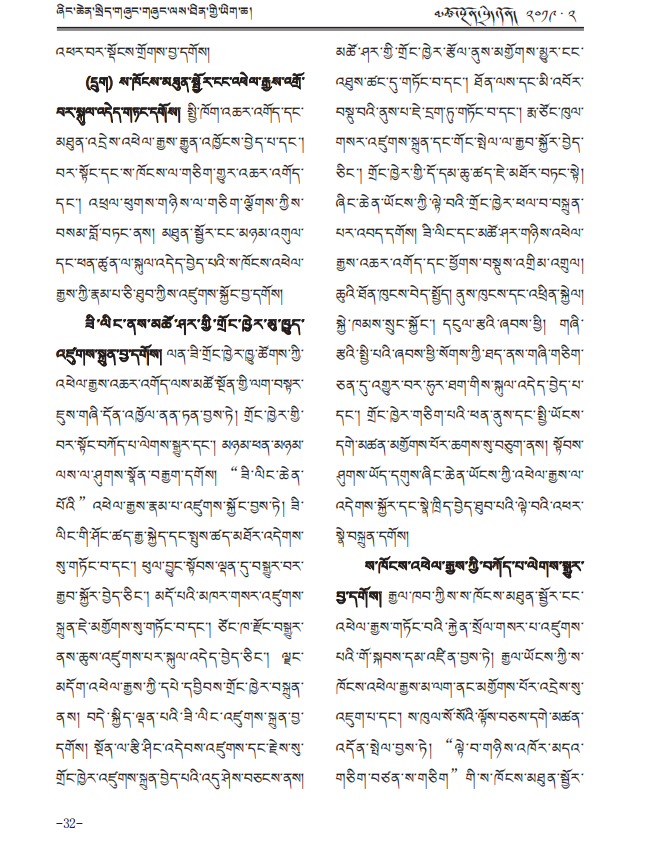 ཞིང་ཆེན་སྲིད་གཞུང་གཞུང་ལས་ཐིན་གྱི་ཡིག་ཆ།
༢༠༡༩ · ༢
འཕར་བར་སྡོངས་གྲོགས་བྱ་དགོས།
(དྲུག) ས་ཁོངས་མཐུན་སྦྱོར་ངང་འཕེལ་རྒྱས་འགྲོ་
བར་སྐུལ་འདེད་གཏང་དགོས། སྤྱི་ཁོག་འཆར་འགོད་དང་
མཐུན་འདྲེས་འཕེལ་རྒྱས་རྒྱུན་འཁྱོངས་བྱེད་པ་དང་།
བར་སྟོང་དང་ས་ཁོངས་ལ་གཅིག་གྱུར་འཆར་འགོད་
དང་། འཕྲལ་ཕུགས་གཉིས་ལ་གཅིག་ལྕོགས་ཀྱིས་
བསམ་བློ་བཏང་ནས། མཐུན་སྦྱོར་ངང་མཉམ་འགུལ་
དང་ཕན་ཚུན་ལ་སྐུལ་འདེད་བྱེད་པའི་ས་ཁོངས་འཕེལ་
རྒྱས་ཀྱི་རྣམ་པ་ཅི་ཐུབ་ཀྱིས་འཛུགས་སྐྱོང་བྱ་དགོས།
ཟི་ལིང་ནས་མཚོ་ཤར་གྱི་གྲོང་ཁྱེར་ཨུ་ཁྱུད་
འཛུགས་སྐྲུན་བྱ་དགོས། ལན་ཟི་གྲོང་ཁྱེར་ཁྱུ་ཚོགས་ཀྱི་
འཕེལ་རྒྱས་འཆར་འགོད་ལས་མཚོ་སྔོན་གྱི་ལག་བསྟར་
ཇུས་གཞི་དོན་འཁྱོལ་ནན་ཏན་བྱས་ཏེ། གྲོང་ཁྱེར་གྱི་
བར་སྟོང་བཀོད་པ་ལེགས་སྒྱུར་དང་། མཉམ་ཕན་མཉམ་
ལས་ལ་ཤུགས་སྣོན་བརྒྱག་དགོས། “ཟི་ལིང་ཆེན་
པོའི” འཕེལ་རྒྱས་རྣམ་པ་འཛུགས་སྐྱོང་བྱས་ཏེ། ཟི་
ལིང་གི་ཤོང་ཚད་རྒྱ་སྐྱེད་དང་སྤུས་ཚད་མཐོར་འདེགས་
སུ་གཏོང་བ་དང་། ཕུལ་བྱུང་སྟོབས་ལྡན་དུ་བསྒྱུར་བར་
རྒྱབ་སྐྱོར་བྱེད་ཅིང་། མདོ་པའི་མཁར་གསར་འཛུགས་
སྐྲུན་ཇེ་མགྱོགས་སུ་གཏོང་བ་དང་། ཙོང་ཁ་རྫོང་བསྒྱུར་
ནས་ཆུས་འཛུགས་པར་སྐུལ་འདེད་བྱེད་ཅིང་། ལྗང་
མདོག་འཕེལ་རྒྱས་ཀྱི་དཔེ་དབྱིབས་གྲོང་ཁྱེར་བསྐྲུན་
ནས། བདེ་སྐྱིད་ལྡན་པའི་ཟི་ལིང་འཛུགས་སྐྲུན་བྱ་
དགོས། སྔོན་ལ་རྩི་ཤིང་འདེབས་འཛུགས་དང་རྗེས་སུ་
གྲོང་ཁྱེར་འཛུགས་སྐྲུན་བྱེད་པའི་འདུ་ཤེས་བཅངས་ནས།
མཚོ་ཤར་གྱི་གྲོང་ཁྱེར་རྩོལ་ནུས་མགྱོགས་མྱུར་ངང་
འཐུས་ཚང་དུ་གཏོང་བ་དང་། ཐོན་ལས་དང་མི་འབོར་
བསྡུ་བའི་ནུས་པ་ཇེ་དྲག་ཏུ་གཏོང་བ་དང་། རྨ་ཙོང་ཁུལ་
གསར་འཛུགས་སྐྲུན་དང་གོང་སྤེལ་ལ་རྒྱབ་སྐྱོར་བྱེད་
ཅིང་། གྲོང་ཁྱེར་གྱི་དོ་དམ་ཆུ་ཚད་ཇེ་མཐོར་བཏང་སྟེ།
ཞིང་ཆེན་ཡོངས་ཀྱི་ལྟེ་བའི་གྲོང་ཁྱེར་ཕལ་བ་བསྐྲུན་
པར་འབད་དགོས། ཟི་ལིང་དང་མཚོ་ཤར་གཉིས་འཕེལ་
རྒྱས་འཆར་འགོད་དང་ཕྱོགས་བསྡུས་འགྲིམ་འགྲུལ།
ཆུའི་ཐོན་ཁུངས་བེད་སྤྱོད། ནུས་ཁུངས་དང་འཕྲིན་སྐྱེལ།
སྐྱེ་ཁམས་སྲུང་སྐྱོང་། དངུལ་རྩའི་ཞབས་ཕྱི། གཞི་
རྩའི་སྤྱི་པའི་ཞབས་ཕྱི་སོགས་ཀྱི་ཐད་ནས་གཞི་གཅིག་
ཅན་དུ་འགྱུར་བར་ཧུར་ཐག་གིས་སྐུལ་འདེད་བྱེད་པ་
དང་། གྲོང་ཁྱེར་གཅིག་པའི་ཕན་ནུས་དང་སྤྱི་ཡོངས་
དགེ་མཚན་མགྱོགས་པོར་ཆགས་སུ་བཅུག་ནས། སྟོབས་
ཤུགས་ཡོད་དགུས་ཞིང་ཆེན་ཡོངས་ཀྱི་འཕེལ་རྒྱས་ལ་
འདེགས་སྐྱོར་དང་སྣེ་ཁྲིད་བྱེད་ཐུབ་པའི་ལྟེ་བའི་འཕར་
སྣེ་བསྐྲུན་དགོས།
ས་ཁོངས་འཕེལ་རྒྱས་ཀྱི་བཀོད་པ་ལེགས་སྒྱུར་
བྱ་དགོས། རྒྱལ་ཁབ་ཀྱིས་ས་ཁོངས་མཐུན་སྦྱོར་ངང་
འཕེལ་རྒྱས་གཏོང་བའི་རྐྱེན་སྲོལ་གསར་པ་འཛུགས་
པའི་གོ་སྐབས་དམ་འཛིན་བྱས་ཏེ། རྒྱལ་ཡོངས་ཀྱི་ས་
ཁོངས་འཕེལ་རྒྱས་མ་ལག་ནང་མགྱོགས་པོར་འདྲེས་སུ་
འཇུག་པ་དང་། ས་ཁུལ་སོ་སོའི་ལྟོས་བཅས་དགེ་མཚན་
འདོན་སྤེལ་བྱས་ཏེ། “ལྟེ་བ་གཉིས་འཁོར་མདའ་
གཅིག་བཙན་ས་གཅིག” གི་ས་ཁོངས་མཐུན་སྦྱོར་
-32-